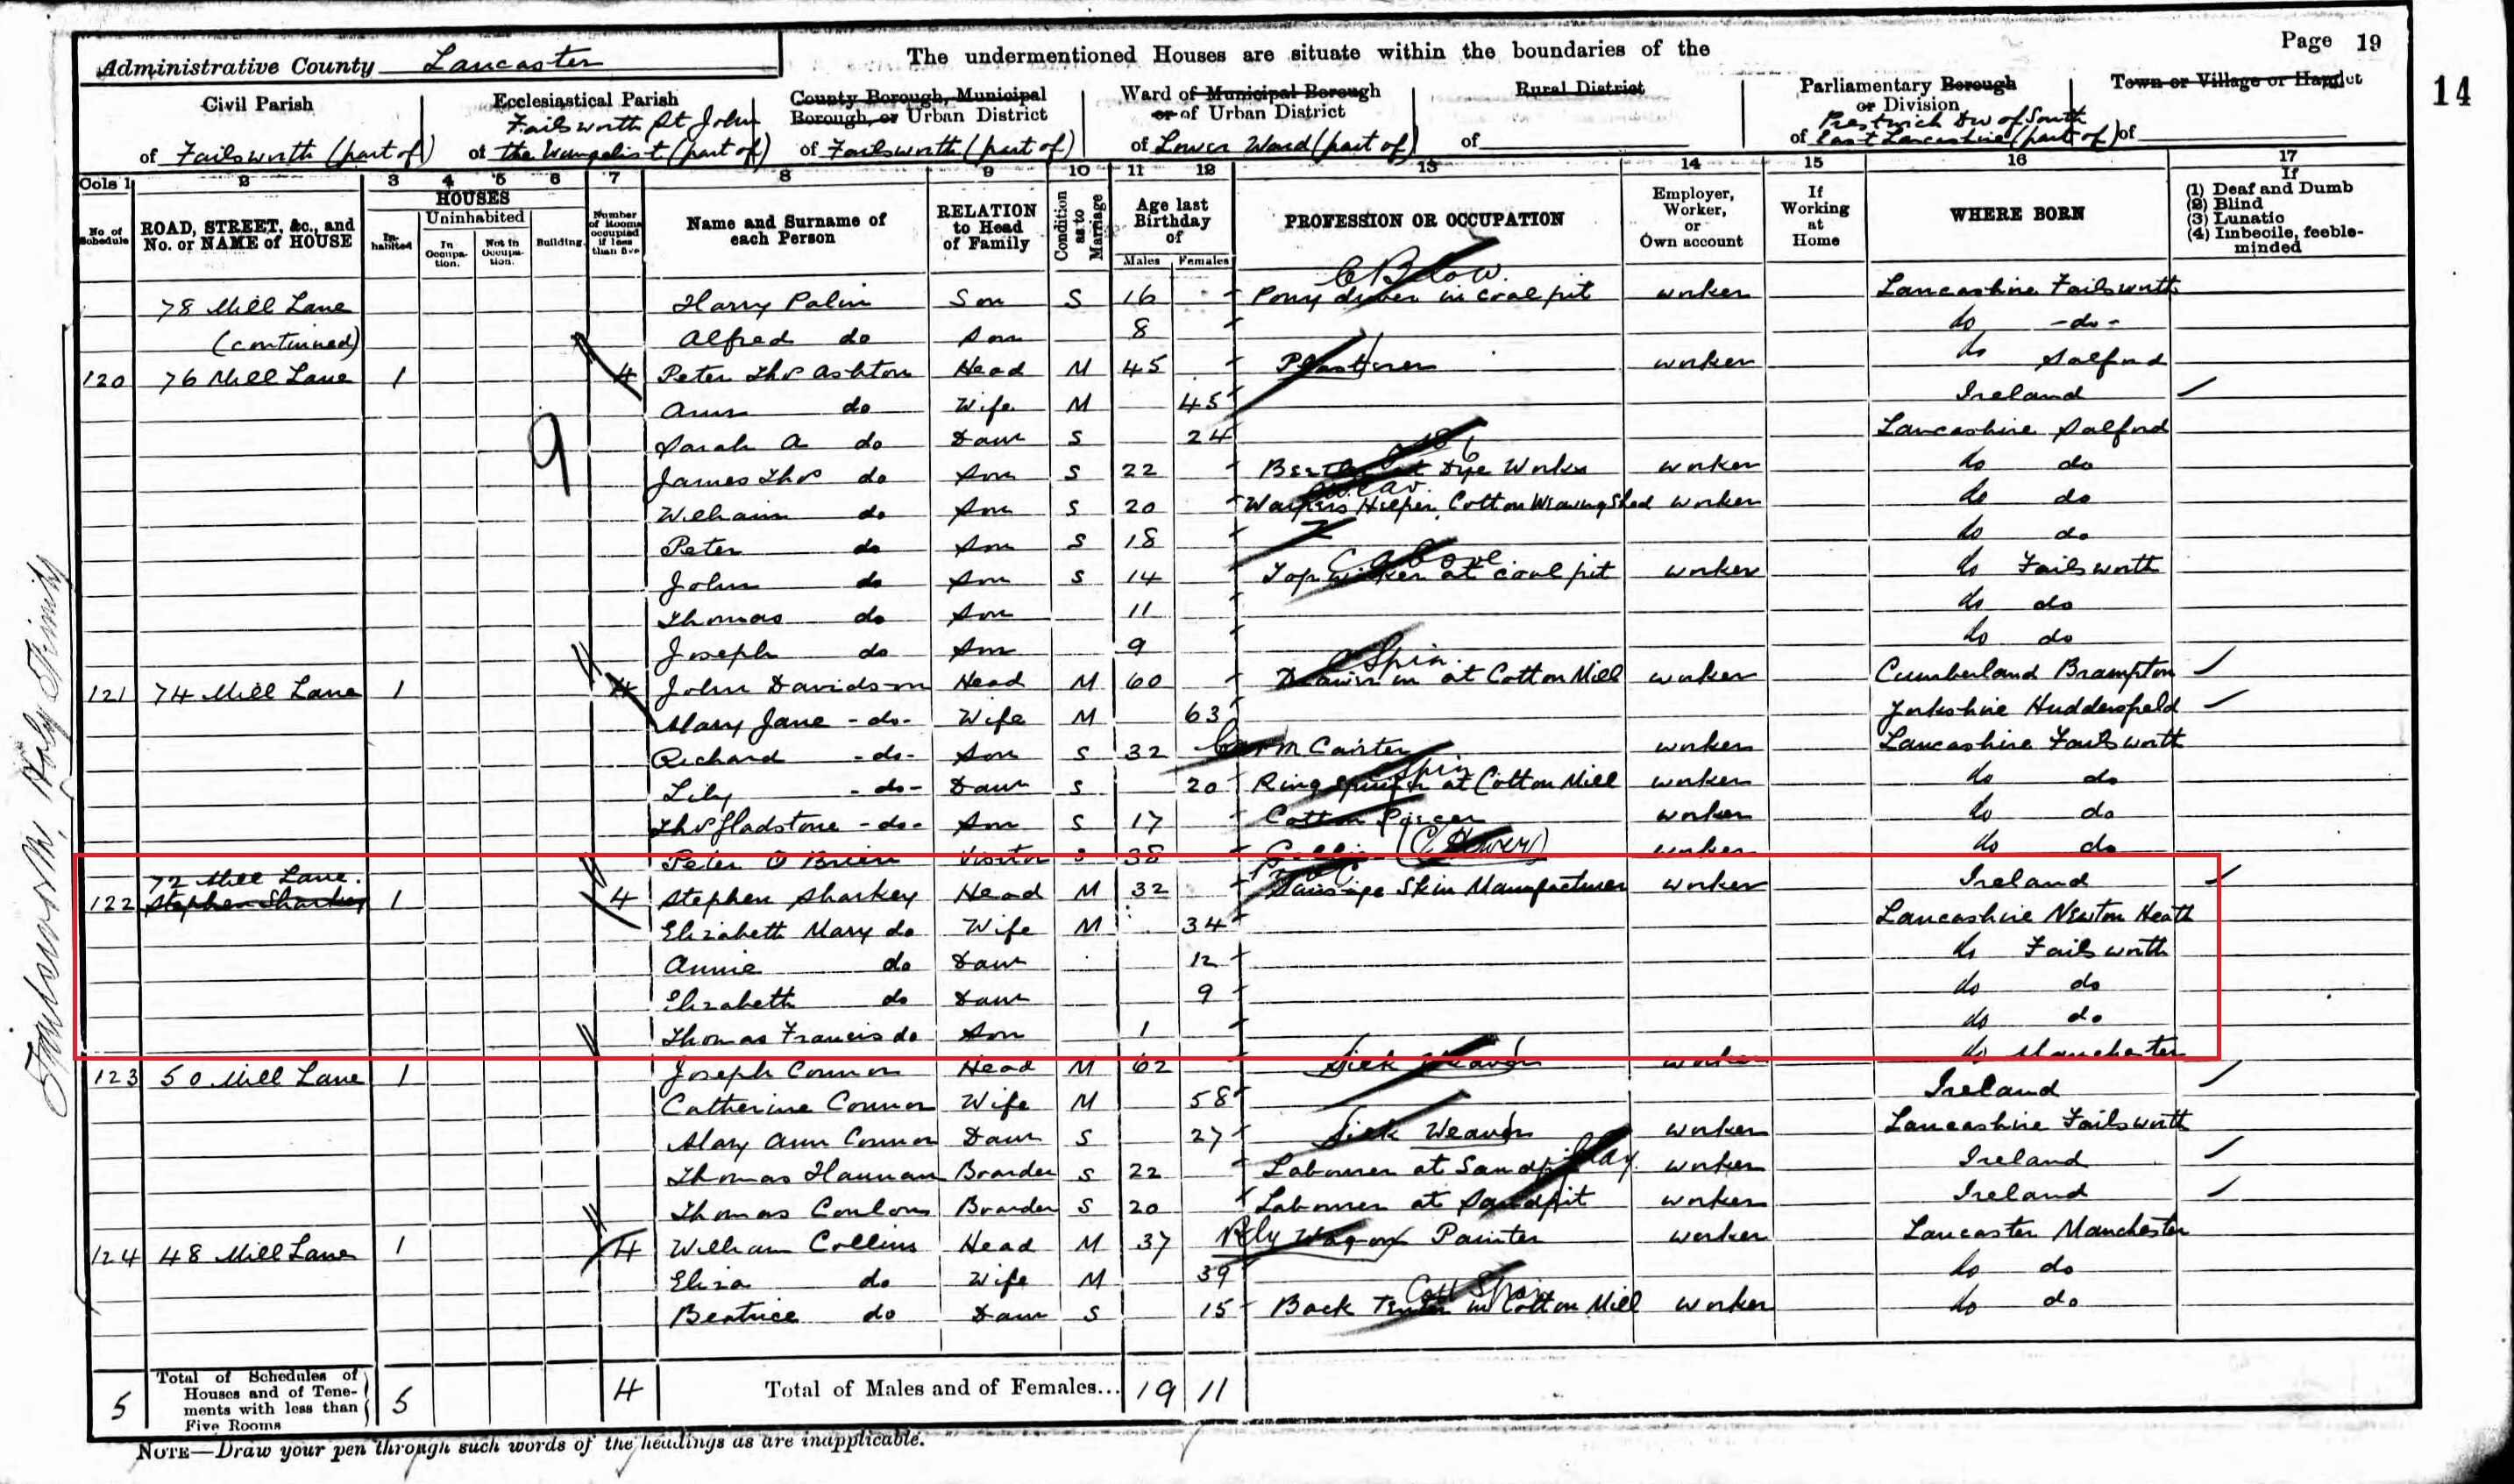 Page 19
14
Administrative County Lancaster
The undermentioned Houses are situate within the boundaries of the
Civil Parish
of Failsworth (part of)
Ecclesiastical Parish
Failsworth St John
of the Evangelist (part of)
County Borough, Municipal
Borough, or Urban District
of Failsworth (part of)
Ward of Municipal Borough
or of Urban District
of Lower Ward (part of)
Rural District
of
Parliamentary Borough
or Division
Prestwich Div of South
of East Lancashire (part of)
Town or Village or Hamlet
of
Cols 1 2 3 4 5 6 7 8 9 10 11 12 13 14 15 16 17
No. of Schedule
ROAD, STREET, &c., and No. or NAME of HOUSE
HOUSES
Inhabited
Uninhabited
In Occupation.
Not in Occupation.
Building.
Number of Rooms occupied if less than five
Name and Surname of each Person
RELATION to Head of Family
Condition as to Marriage
Age last Birthday of
Males Females
PROFESSION OR OCCUPATION
Employer, Worker, or Own account
If Working at Home
WHERE BORN
If
(1) Deaf and Dumb
(2) Blind
(3) Lunatic
(4) Imbecile, feeble-minded
78 Mill Lane Harry Palin Son S 16 Pony driver in coal pit worker Lancashire Failsworth
(continued) Alfred do Son 8 do -do-
120 76 Mill Lane 1 4 Peter Thos Ashton Head M 45 Plasterer worker do Salford
Ann do Wife M 45 Ireland
Sarah A do Daur S 24 Lancashire Salford
James Thos do Son S 22 at Dye Works worker do do
William do Son S 20 Warpers Helper Cotton Weaving Shed worker do do
Peter do Son S 18 do do
John do Son S 14 Top worker at coal pit worker do Failsworth
Thomas do Son 11 do do
Joseph do Son 9 do do
121 74 Mill Lane 1 4 John Davidson Head M 60 Drawer in at Cotton Mill worker Cumberland Brampton
Mary Jane -do- Wife M 63 Yorkshire Huddersfield
Richard -do- Son S 32 Carter worker Lancashire Failsworth
Lily -do- Daur S 20 Ring Spinner at Cotton Mill worker do do
Thos Gladstone -do- Son S 17 Cotton Piecer worker do do
Peter O Brien Visitor S 38 (Hewer) worker do do
72 Mill Lane.
122 Stephen Sharkey 1 4 Stephen Sharkey Head M 32 Sausage Skin Manufacturer worker Ireland
Elizabeth Mary do Wife M 34 Lancashire Newton Heath
Annie do Daur 12 do Failsworth
Elizabeth do Daur 9 do do
Thomas Francis do Son 1 do do
123 50 Mill Lane 1 Joseph Connor Head M 62 Silk Weaver worker do Manchester
Catherine Connor Wife M 58 Ireland
Mary Ann Connor Daur S 27 Silk Weaver worker Lancashire Failsworth
Thomas Hannan Boarder S 22 Labourer at Sandpit worker Ireland
Thomas Conlon Boarder S 20 Labourer at Sandpit worker Ireland
124 48 Mill Lane 1 4 William Collins Head M 37 Rly Wagon Painter worker Lancaster Manchester
Eliza do Wife M 39 do do
Beatrice do Daur S 15 Back Tenter in Cotton Mill worker do do
5 Total of Schedules of Houses and of Tenements with less than Five Rooms 5 4 Total of Males and of Females... 19 11
NOTE—Draw your pen through such words of the headings as are inapplicable.